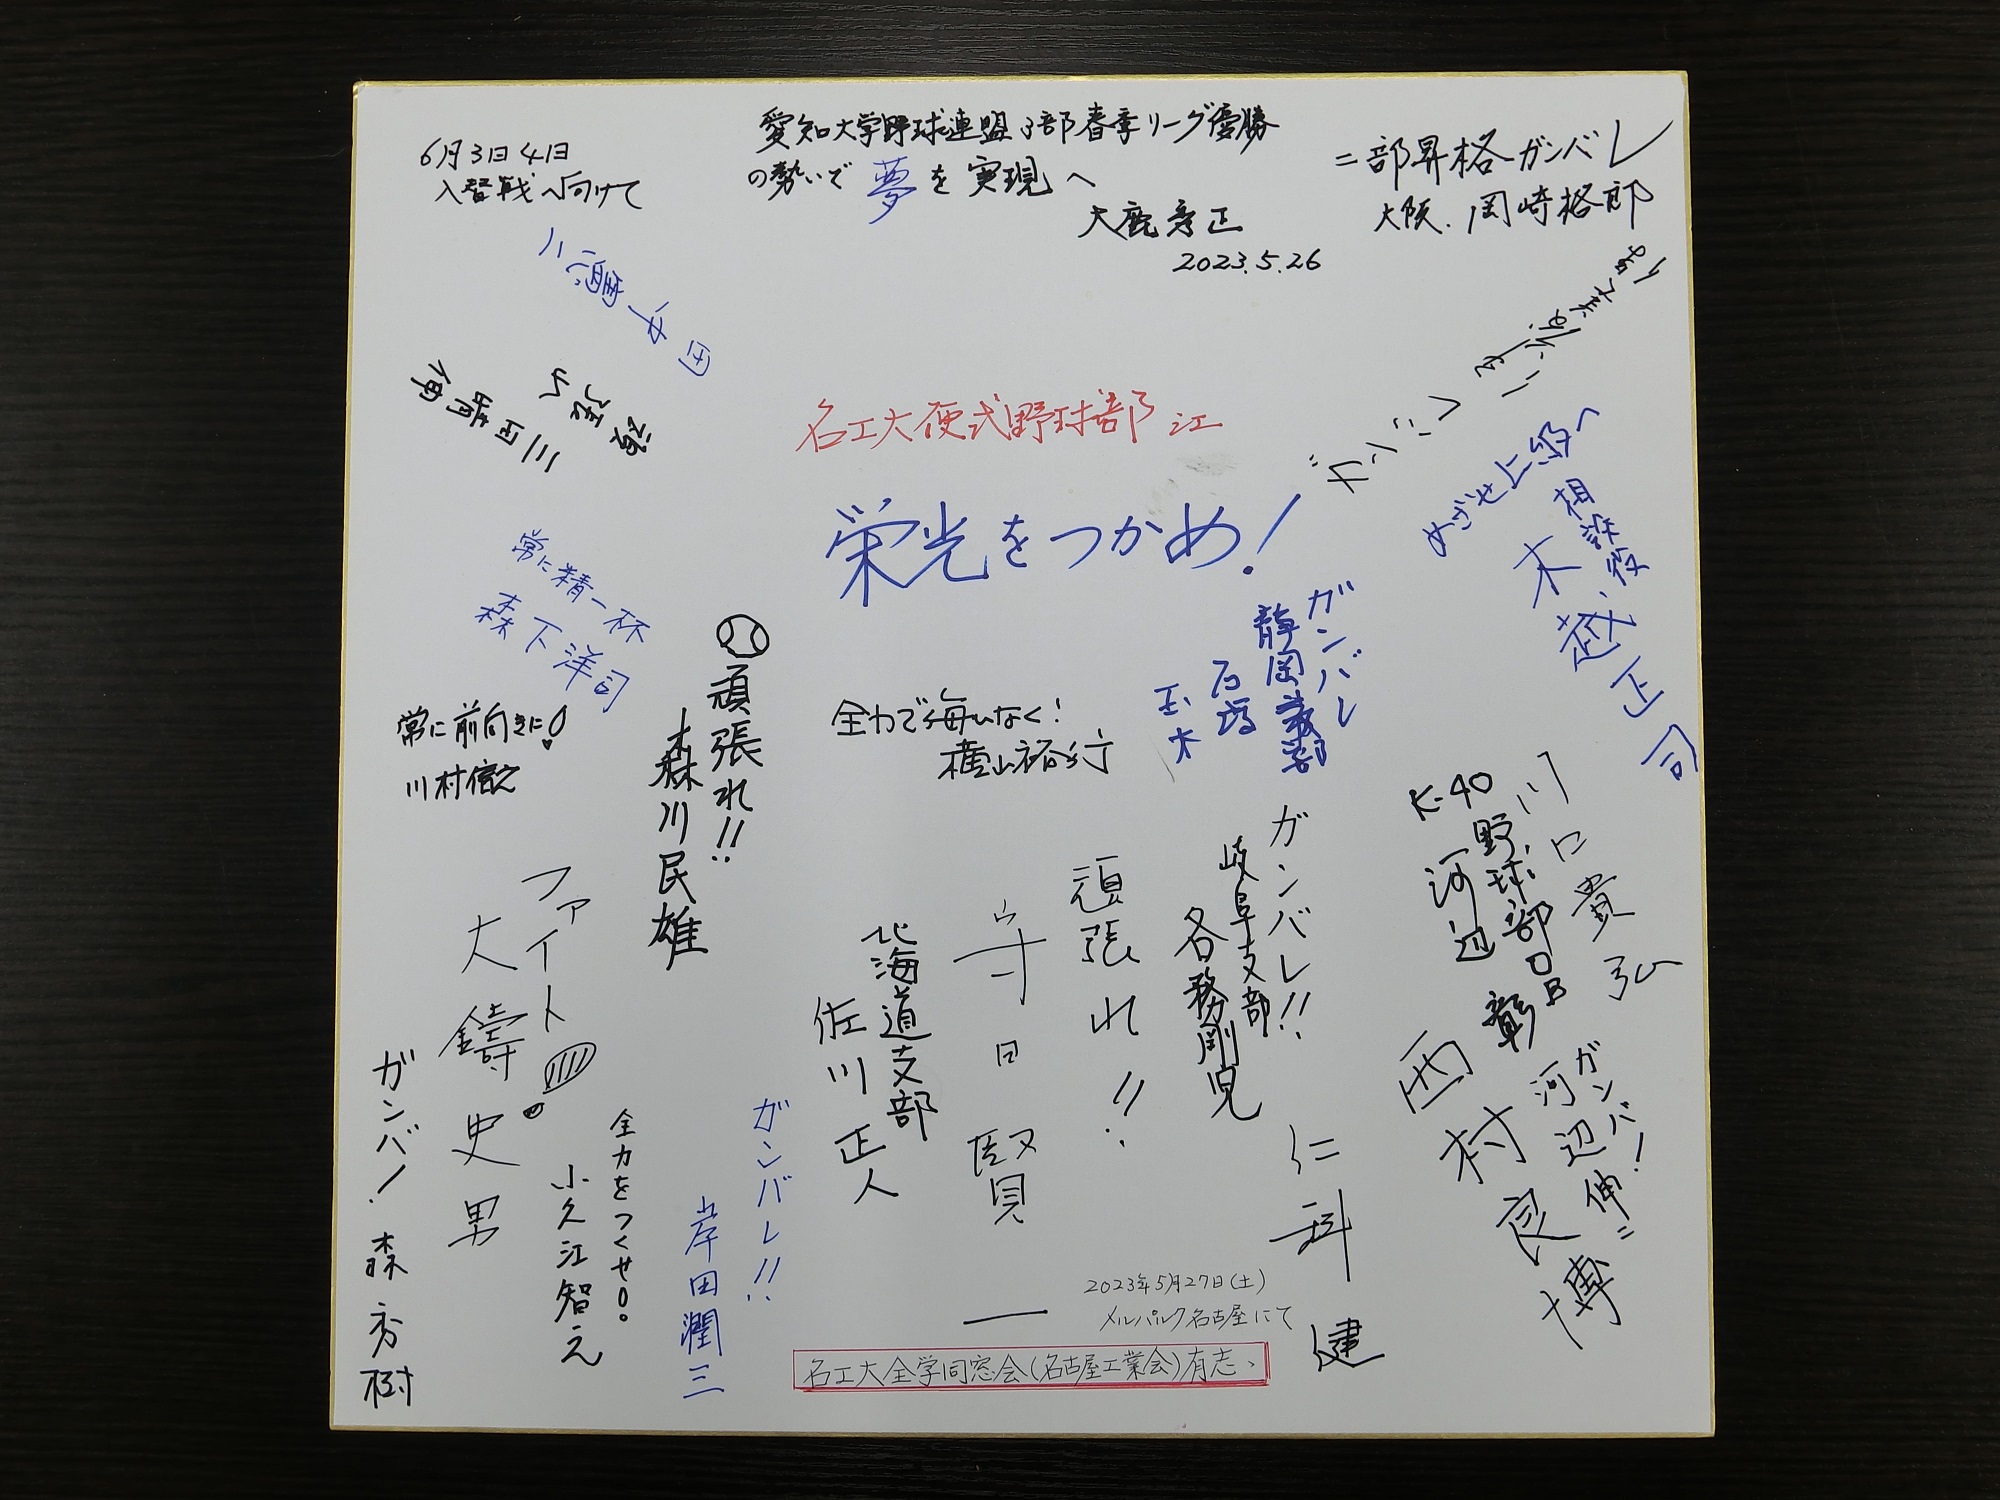 愛知大学野球連盟3部春季リーグ優勝
の勢いで夢を実現へ
大鹿秀正
2023.5.26
6月3日4日
入替戦へ向けて
二部昇格ガンバレ
大阪.岡崎格郎
三田晴伸
名工大硬式野球部江
栄光をつかめ!
ガンバレ
めざせ上級へ
相談役
木越正司
常に精一杯
森下洋司
常に前向きに!
川村信之
頑張れ!!
森川民雄
全力で悔いなく!
横山裕行
ガンバレ
静岡支部
石塚
玉木
K-40
野球部OB
河辺
彰
川口貴弘
ガンバレ!!
岐阜支部
各務剛児
頑張れ!!
守田賢一
北海道支部
佐川正人
ファイト
大鑄史男
ガンバ!
森秀樹
全力をつくせ!。
小久江智え
ガンバレ!!
岸田潤三
仁科健
西村良博
ガンバ!
河辺伸二
2023年5月27日(土)
メルパルク名古屋にて
名工大全学同窓会(名古屋工業会)有志、